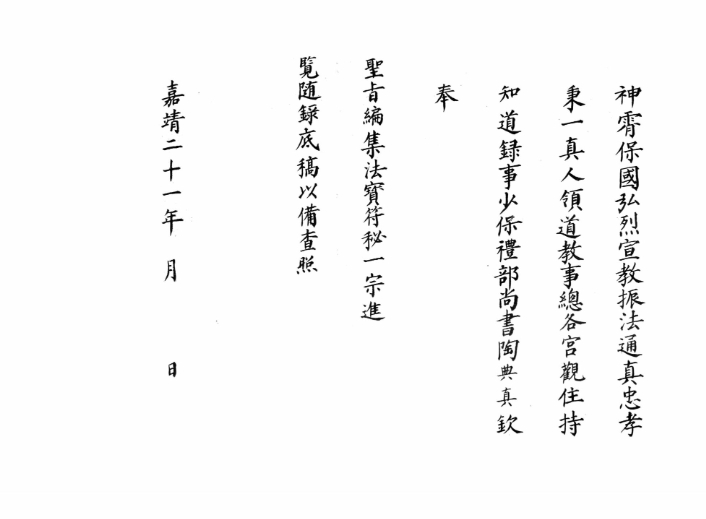 神霄保國弘烈宣教振法通真忠孝
秉一真人領道教事總各宮觀住持
知道録事少保禮部尚書陶典真欽
奉
聖旨編集法寶符秘一宗進
覽隨録底稿以備查照
嘉靖二十一年 月 日